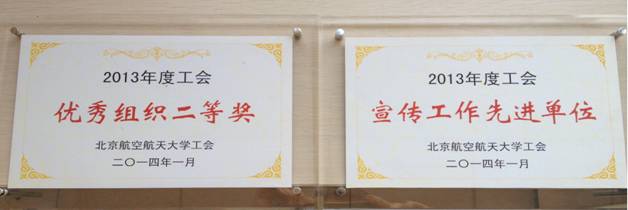 2013年度工会
优秀组织二等奖
北京航空航天大学工会
二〇一四年一月
2013年度工会
宣传工作先进单位
北京航空航天大学工会
二〇一四年一月